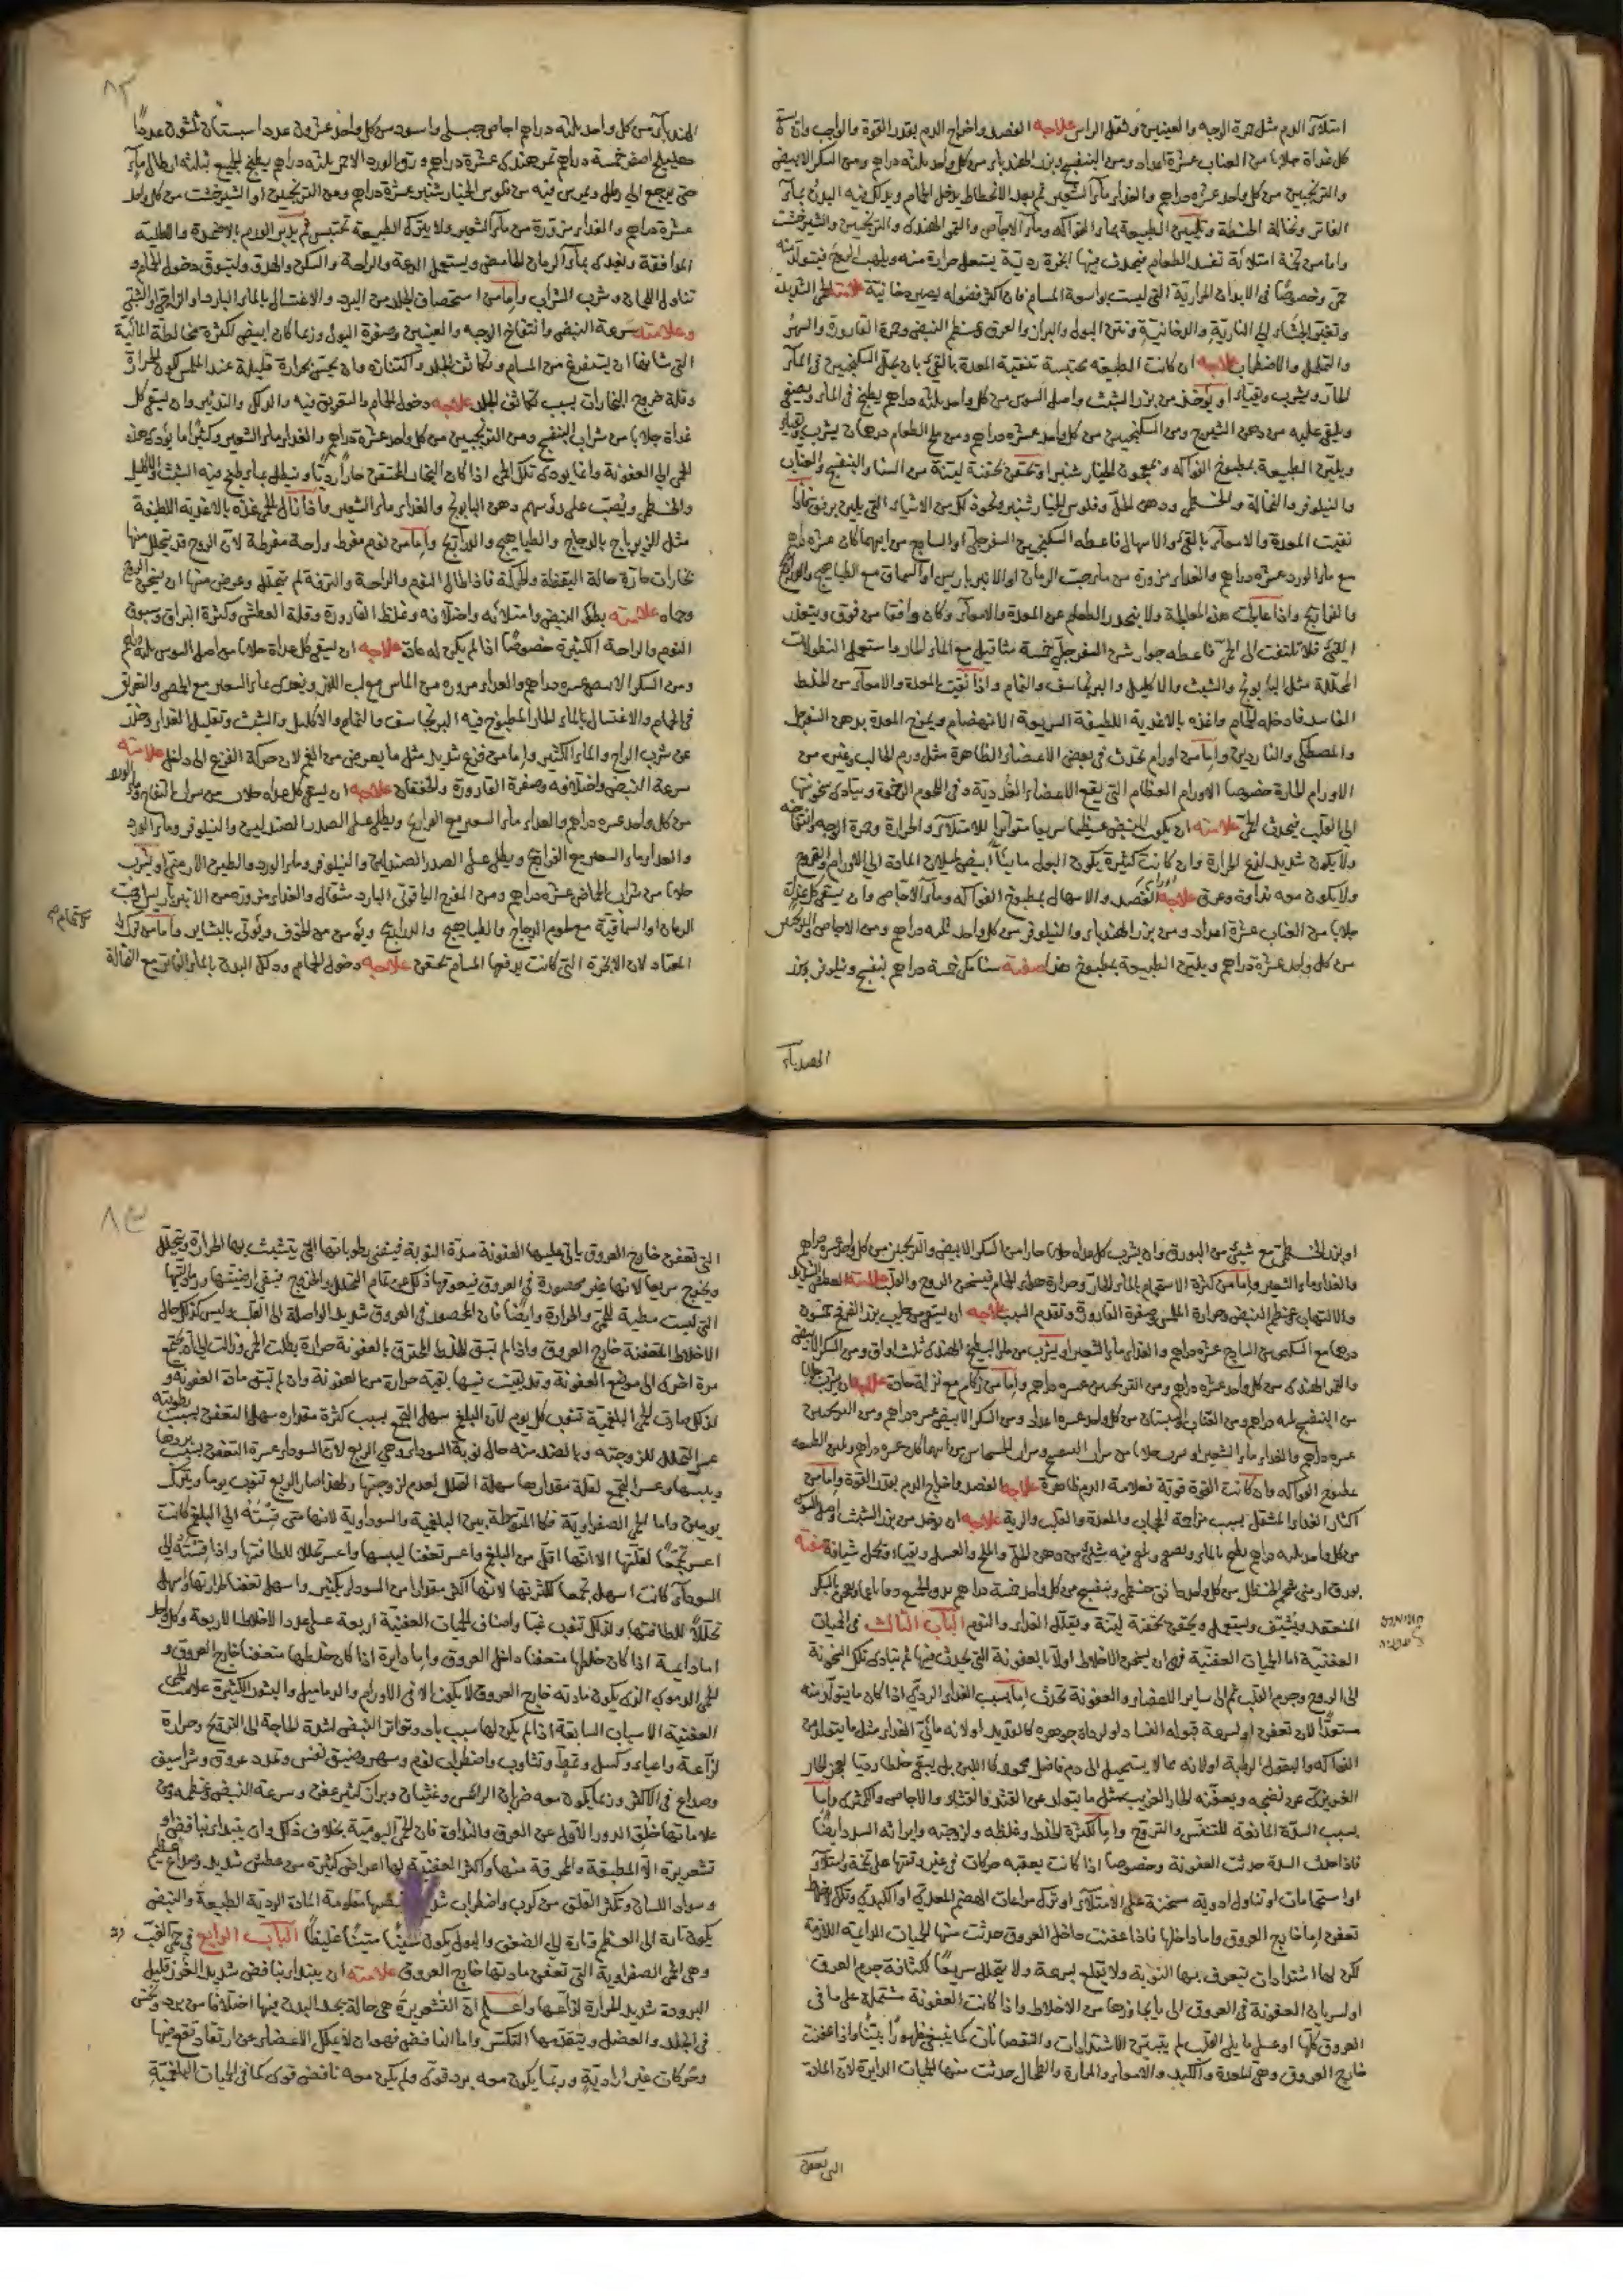 امتلاء الدم مثل حمرة الوجه والعينين وثقل الراس علاجه الفصد واخراج الدم بقدر القوة والواجب وان
كل غداة جلابا من العناب عشرة اعداد ومن البنفسج وبزر الهندباء من كل واحد ثلثة دراهم ومن السكر الابيض
والترنجبين من كل واحد عشرة دراهم والغذاء ماء الشعير ثم بعد الانحطاط يدخل الحمام ويدلك فيه البدن بماء
الفاتر ونخالة الحنطة وتليين الطبيعة بماء الفواكه وماء الاجاص والتمر الهندى والترنجبين والشيرخشت
واما من تخمة امتلائه تفسد الطعام فيحدث فيها ابخرة ردية يشتعل حرارة منه ويلهب الروح فيتولد منه
حمى وخصوصا فى الابدان المرارية التى ليست بواسعة المسام فان اكثر فضوله يصير دخانية علامتها الحمى الشديدة
وتغير الجشاء الى النارية والدخانية ونتن البول والبراز والعرق وعظم النبض وحمرة القارورة والسهر
والتململ والاضطراب علاجه ان كانت الطبيعة محتبسة تنقية المعدة بالقئ بان يحل السكنجبين فى الماء
الحار ويشرب ويقياء او يؤخذ من بزر الشبث واصل السوس من كل واحد ثلثة دراهم يطبخ فى الماء ويصفى
ويلقى عليه من دهن الشيرج ومن السكنجبين من كل واحد عشرة دراهم ومن ملح الطعام درهمان يشرب ويقياء
ويلين الطبيعة بمطبوخ الفواكه ومعجون الخيار شنبر او تحقن بحقنة لينة من السنا والبنفسج والعناب
والنيلوفر والنخالة والخطمى ودهن الحل وفلوس الخيار شنبر ونحو ذلك من الاشياء التى يلين برفق فاذا
نقيت المعدة والامعاء بالقئ والاسهال فاعطه السكنجبين السفرجلى او الساذج من ايهما كان عشرة دراهم
مع ماء الورد عشرة دراهم والغذاء مزورة من ماء حب الرمان او الانبرباريس او السماق مع الطياهيج والدراج
والفراريج واذا
القئ فلا تلتفت الى الحمى فاعطه جوارشن السفرجلى خمسة مثاقيل مع الماء الحار واستعمل النطولات
المحللة مثل البابونج والشبث والاكليل والبرنجاسف والنمام واذا نقيت المعدة والامعاء من الخلط
الفاسد فادخله الحمام واغذه بالاغذية اللطيفة السريعة الانهضام ويمرخ المعدة بدهن السفرجل
والمصطكى والناردين واما من اورام تحدث فى بعض الاعضاء الظاهرة مثل ورم الحالب وغيره من
الاورام الحارة خصوصا الاورام العظام التى يقع الاعضاء الغددية وفى اللحوم الرخوة ويتادى سخونتها
الى القلب فيحدث الحمى علامته ان يكون النبض عظيما سريعا متواترا للامتلاء والحرارة وحمرة الوجه وانتفاخه
ولا يكون شديد لذع الحرارة وان كانت كثيرة يكون البول مائيا ابيض لميلان المادة الى الاورام والقروح
ولا يكون معه نداوة وعرق علاجه الفصد والاسهال بمطبوخ الفواكه وماء الاجاص وان يسقى كل غداة
جلابا من العناب عشرة اعداد ومن بزر الهندباء والنيلوفر من كل واحد ثلثه دراهم ومن الاجاص
من كل واحد عشرة دراهم ويلين الطبيعة بمطبوخ هذا صفته سنا مكى خمسة دراهم بنفسج ونيلوفر بزر
الهندباء
الهندباء من كل واحد ثلثه دراهم اجاص جبلى واسود من كل واحد عشرون عددا سبستان ثلثون عددا
هليلج اصفر خمسة دراهم تمر هندى عشرة دراهم ورق الورد الاحمر ثلثه دراهم يطبخ الجميع ثلثه ارطال ماء
حتى يرجع الى رطل ويمرس فيه من فلوس الخيار شنبر عشرة دراهم ومن الترنجبين او الشيرخشت من كل واحد
عشرة دراهم والغذاء مزورة من ماء الشعير ولا يترك الطبيعة تحتبس ثم يدبر الورم بالاضمدة والاطلية
الموافقة ويغذى بماء الرمان الحامض ويستعمل الدعة والراحة والسكون والهدو وليتوق دخول الحمام و
تناول اللحمان وشرب الشراب واما من استحصاف الجلد من البرد والاغتسال بالماء البارد او الزاجى او الشبى
وعلامته سرعة النبض وانتفاخ الوجه والعينين وصفرة البول وربما كان ابيض لكثرة مخالطة المائية
التى شانها ان يستفرغ من المسام وتكاثف الجلد واكتنازه وان يحس بحرارة قليلة عند اللمس لكون الحرارة
وقلة خروج البخارات بسبب تكاثف الجلد علاجه دخول الحمام والتعريق فيه والدلك والتدثير وان يسقى كل
غداة جلابا من شراب البنفسج ومن الترنجبين من كل واحد عشرة دراهم والغذاء ماء الشعير وكثيرا ما يؤدى هذه
الحمى الى العفونة وانما يودى تلك الحمى اذا كان البخار المحتقن حارا رديا وينطل بماء طبخ فيه الشبث والاكليل
والخطمى ويصب على رؤسهم دهن البابونج والغذاء ماء الشعير واذا زال الحمى غذه بالاغذية اللطيفة
مثل الزيرباج بالدجاج والطياهيج والدراريج واما من نوم مفرط وراحة مفرطة لان الروح قد يتحلل منها
بخارات حارة حالة اليقظة والحركة فاذا طال النوم والراحة والترفة لم يتحلل وعرض منها ان يتسخن الروح
وحماه علامته بطؤ النبض وامتلائه واختلافه وغلظ القارورة وقلة العطش وكثرة البزاق وسبوق
النوم والراحة الكثيرة خصوصا اذا لم يكن له عادة علاجه ان يسقى كل غداة جلابا من اصل السوس ثلثة دراهم
ومن السكر الابيض عشره دراهم والغذاء مزوره من الماش مع لب اللوز ويغذى بماء الشعير مع الحمص والتعريق
فى الحمام والاغتسال بالماء الحار المطبوخ فيه البرنجاسف والنمام والاكليل والشبث وتقليل الغذاء وحذر
عن شرب الراح والماء الكثير واما من فزع شديد مثل ما يعرض من الغم لان حركة الفزع الى داخل علامته
سرعة النبض واختلافه وصفرة القارورة والخفقان علاجه ان يسقى كل غداه جلاب من شراب التفاح وماء الورد
من كل واحد عشره دراهم والغذاء ماء الشعير مع الفراريج ويطلى على الصدر الصندلين والنيلوفر وماء الورد
والغذاء ماء الشعير مع الفراريج ويطلى على الصدر الصندلين والنيلوفر وماء الورد والطين الارمنى او يشرب
جلابا من شراب الحماض عشرة دراهم ومن المفرح الياقوتى البارد مثقال والغذاء مزورة من الانبرباريس او حب
الرمان او السماقية مع لحوم الدجاج والطياهيج والدراريج ويؤمن من الخوف ويؤتى بالبشاير واما من ترك الاستحمام
المعتاد لان الابخرة التى كانت يدفعها المسام تحتقن علاجه دخول الحمام ودلك البدن بالماء الفاتر مع النخالة
او بزر الخطمى مع شئ من البورق وان يشرب كل غداه جلابا حارا من السكر الابيض والترنجبين من كل واحد عشره دراهم
والغذاء ماء الشعير واما من كثرة الاستحمام بالماء الحار وحرارة هواء الحمام فيسخن الروح والقلب علامته العطش الشديد
والالتهاب وعظم النبض وحرارة الملمس وصفرة القارورة وتقدم السبب علاجه ان يسقى من حليب بزر القرع عشرون
درهما مع السكنجبين الساذج عشرة دراهم والغذاء ماء الشعير او يشرب من ماء البطيخ الهندى ثلث اواق ومن السكر الابيض
والتمر الهندى من كل واحد عشره دراهم ومن الترنجبين عشره دراهم واما من زكام مع نزلة حادة علاجه ان يشرب جلابا
من البنفسج ثلثه دراهم ومن العناب والسبستان من كل واحد عشره اعداد ومن السكر الابيض عشره دراهم ومن الترنجبين
عشره دراهم والغذاء ماء الشعير او يشرب جلابا من شراب البنفسج وشراب الخشخاش من ايهما كان عشره دراهم ويلين الطبيعه
بمطبوخ الفواكه وان كانت القوة قوية فعلامة الدم ظاهرة علاجه الفصد واخراج الدم بقدر القوة واما من
اكثار الغذاء المثقل بسبب مزاحمة الحجاب والمعدة والقلب والرية علاجه ان يؤخذ من بزر الشبث واصل السوس
من كل واحد ثلثه دراهم يطبخ بالماء ويصفى ويلقى فيه شئ من دهن الحل والملح والعسل ويقياء وتحمل شيافة صفته
بورق ارمنى شحم الحنظل من كل واحد دانق خطمى وبنفسج من كل واحد خمسة دراهم يدق الجميع دقا ناعما ويعجن بالسكر
المنعقد ويشيف ويستعمل ويحقن بحقنة لينة ويقلل الغذاء والنوم الباب الثالث فى الحميات
العفنية اما الحميات العفنية فهى ان يسخن الاخلاط اولا بالعفونة التى يحدث فيها ثم يتادى تلك السخونة
الى الروح وجرم القلب ثم الى ساير الاعضاء والعفونة تحدث اما بسبب الغذاء الردى اذا كان ما يتولد منه
مستعدا لان تعفن او لسرعة قبوله الفساد او لرداة جوهره كالقديد او لانه مائى الغذاء مثل ما يتولد من
الفواكه والبقول الرطبة او لانه مما لا يستحيل الى دم فاضل محمود كاللبن بل يبقى خلطا رديا يعجز الحار
الغريزى عن نضجه ويعفنه الحار الغريب كمثل ما يتولد عن القثد والقثاء والاجاص والكمثرى واما
بسبب السدة المانعة للتنفس والتروح واما لكثرة الخلط وغلظه ولزوجته وايراثه السدد ايضا
فاذا حدثت السدة حدثت العفونة وخصوصا اذا كانت يعقبه حركات فى غير وقتها على تخمة وامتلاء
او استحمامات او تناول ادوية مسخنة على الامتلاء او ترك مراعات الهضم المعدى او الكبدى وتلك الاخلاط
تعفن اما خارج العروق واما داخلها فاذا عفنت داخل العروق حدثت منها الحميات الدايمة اللازمة
لكن لها اشتدادات يعرف بها النوبة ولا يقلع بسرعة ولا يتحلل سريعا لكثافة جرم العرق
او لسريان العفونة فى العروق الى ما يجاورها من الاخلاط واذا كانت العفونة مشتملة على ما فى
العروق كلها او على ما يلى القلب لم يتبين الاشتدادات والنقصانات كما ينبغى ظهورا بينا واذا عفنت
خارج العروق وهى المعدة والكبد والامعاء والمرارة والطحال حدثت منها الحميات الدايرة لان المادة
التى تعفن
التى تعفن خارج العروق ياتى عليها العفونة مدة النوبة فيفنى رطوباتها التى يتشبث بها الحرارة ويتحلل
ويخرج سريعا لانها غير محصورة فى العروق فيعوقها ذلك عن تمام التحلل والخروج فبقى رمضيتها ورماديتها
التى ليست مطية للحمى والحرارة وايضا فان المحصور فى العروق شديد الواصلة الى القلب وليس كذلك حال
الاخلاط المتعفنة خارج العروق واذا لم تبق للخلط المحترق بالعفونة حرارة بطلت الحمى وزالت الى ان يجتمع
مرة اخرى الى موضع العفونة وقد بقيت فيها بقية حرارة من العفونة وان لم تبق مادة العفونة و
لذلك صارت الحمى البلغمية تنوب كل يوم لان البلغم سهل التجمع بسبب كثرة مقداره سهل التعفن بسبب رطوبته
عسر التحلل للزوجته وبالضد منه حال نوبة السوداء وحمى الربع لان السوداء عسرة التعفن بسبب بردها
ويبسها وعسرة التجمع لقلة مقدارها سهلة التحلل لعدم لزوجتها ولهذا صار الربع تنوب يوما ويترك
يومين واما الحمى الصفراوية فكالمتوسطة بين البلغمية والسوداوية لانها متى قيسته الى البلغم كانت
اعسر تجمعا لقلتها الا انها اقل من البلغم واعسر تعفنا ليبسها واعسر تحللا للطافتها واذا قيسته الى
السوداء كانت اسهل تجمعا لكثرتها لانها اكثر مقدارا من السوداء بكثير واسهل تعفنا لحرارتها واسهل
تحللا للطافتها ولذلك تنوب غبا واصناف الحميات العفنية اربعة على عدد الاخلاط الاربعة وكل واحد
اما دايمة اذا كان خلطها متعفنا داخل العروق واما دايرة اذا كان خلطها متعفنا خارج العروق و
الحمى الدموى الذى يكون مادته خارج العروق لا يكون الا فى الاورام والدماميل والبثور الكثيرة علامات الحمى
العفنية الاسباب السابقة اذا لم يكن لها سبب باد وتواتر النبض لشدة الحاجة الى الترويح وحرارة
لذاعة واعياء وكسل وتمط وتثاوب واضطراب نوم وسهر وضيق نفس وتمدد عروق وشراسيف
وصداع فى الاكثر وربما يكون معه ضربان الراس وغثيان وبراز كثير عفن وسرعة النبض وعظمه ومن
علاماتها خلو الدور الاول عن العرق والنداوة فان الحمى اليومية بخلاف ذلك وان يبتداء بنافض او
قشعريرة الا المطبقة والمحرقة منها واكثر العفنية لها اعراض كثيرة من عطش شديد وصداع عظيم
وسواد اللسان وتكثر القلق من كرب واضطراب مقاومة المادة الردية الطبيعة والنبض
يكون تارة الى العظم وتارة الى الضعف والبول يكون غليظا الباب الرابع فى حمى الغب
وهى الحمى الصفراوية التى تعفن مادتها خارج العروق علامته ان يبتداء بنافض شديد الغرز قليل
البرودة شديد الحرارة لذاعها واعلم ان القشعريرة هى حالة يجد البدن فيها اختلافا من برد ونخس
فى الجلد والعضل ويتقدمها التكسر واما النافض فهو ان لا يملك الاعضاء عن ارتعاد تقع فيها
وحركات غير ارادية وربما يكون معه برد قوى ولم يكن معه نافض قوى كما فى الحميات البلغمية